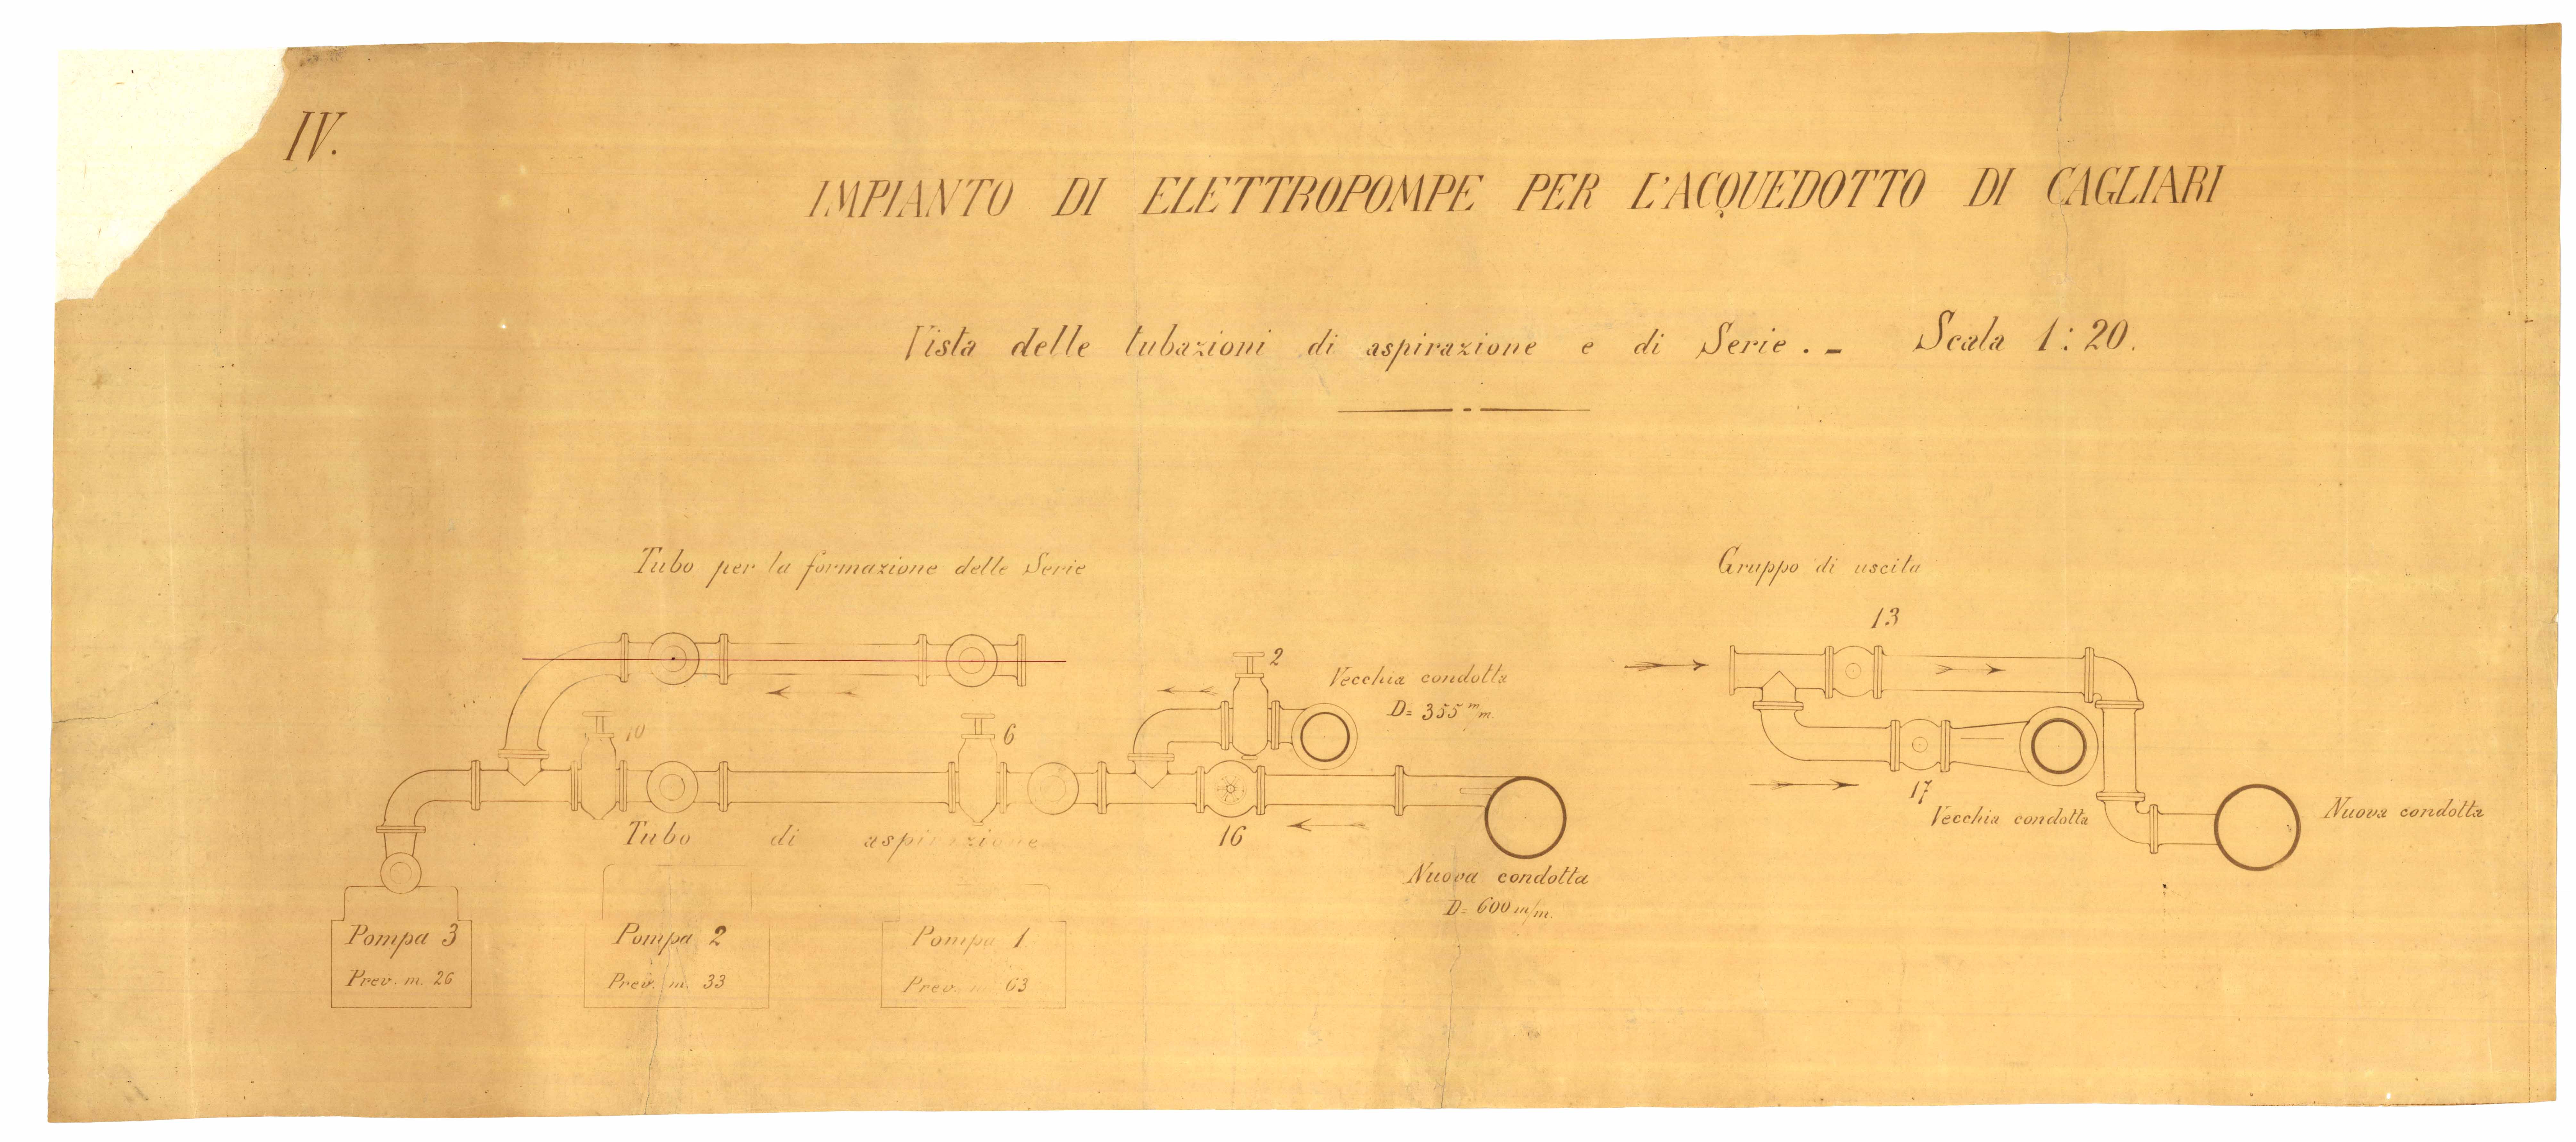 IV.
IMPIANTO DI ELETTROPOMPE PER L'ACQUEDOTTO DI CAGLIARI
Vista delle tubazioni di aspirazione e di Serie. - Scala 1:20.
Tubo per la formazione delle Serie
10
6
2
Vecchia condotta
D= 355 m/m.
Tubo di aspirazione
16
Nuova condotta
D= 600 m/m.
Pompa 3
Prev. m. 26
Pompa 2
Prev. m. 33
Pompa 1
Prev. m. 63
Gruppo di uscita
13
17
Vecchia condotta
Nuova condotta